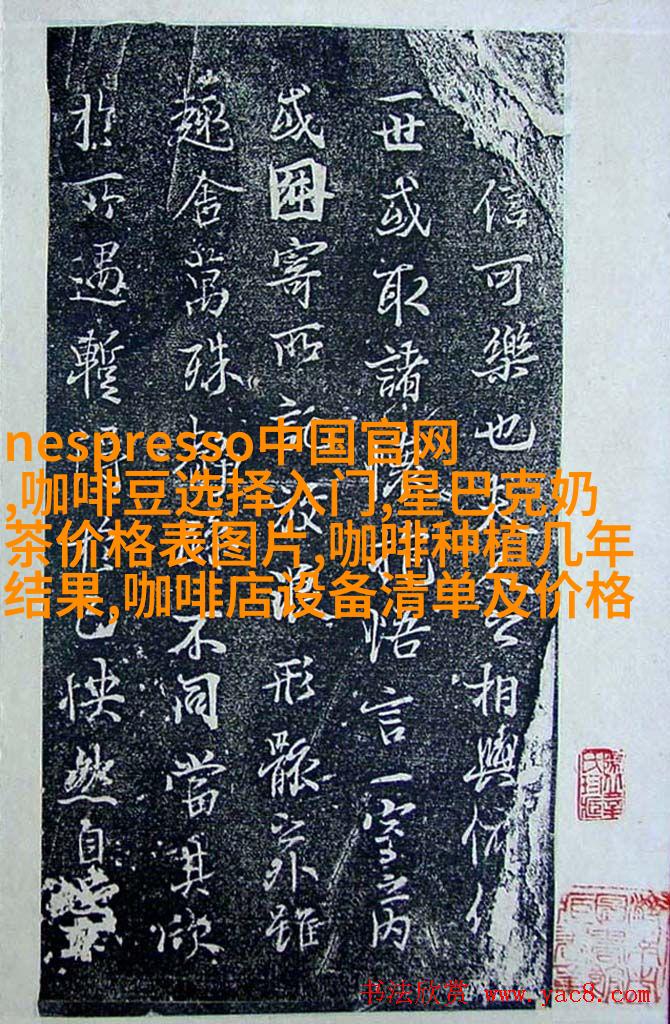 信可樂也夫人之相與俯仰
一世或取諸懷抱悟言一室之内
或因寄所託放浪形骸之外雖
趣舍萬殊靜躁不同當其欣
於所遇暫得於己怏然自
nespresso中国官网
,咖啡豆选择入门,星巴克奶
茶价格表图片,咖啡种植几年
结果,咖啡店设备清单及价格
书法欣赏 www.yac8.com